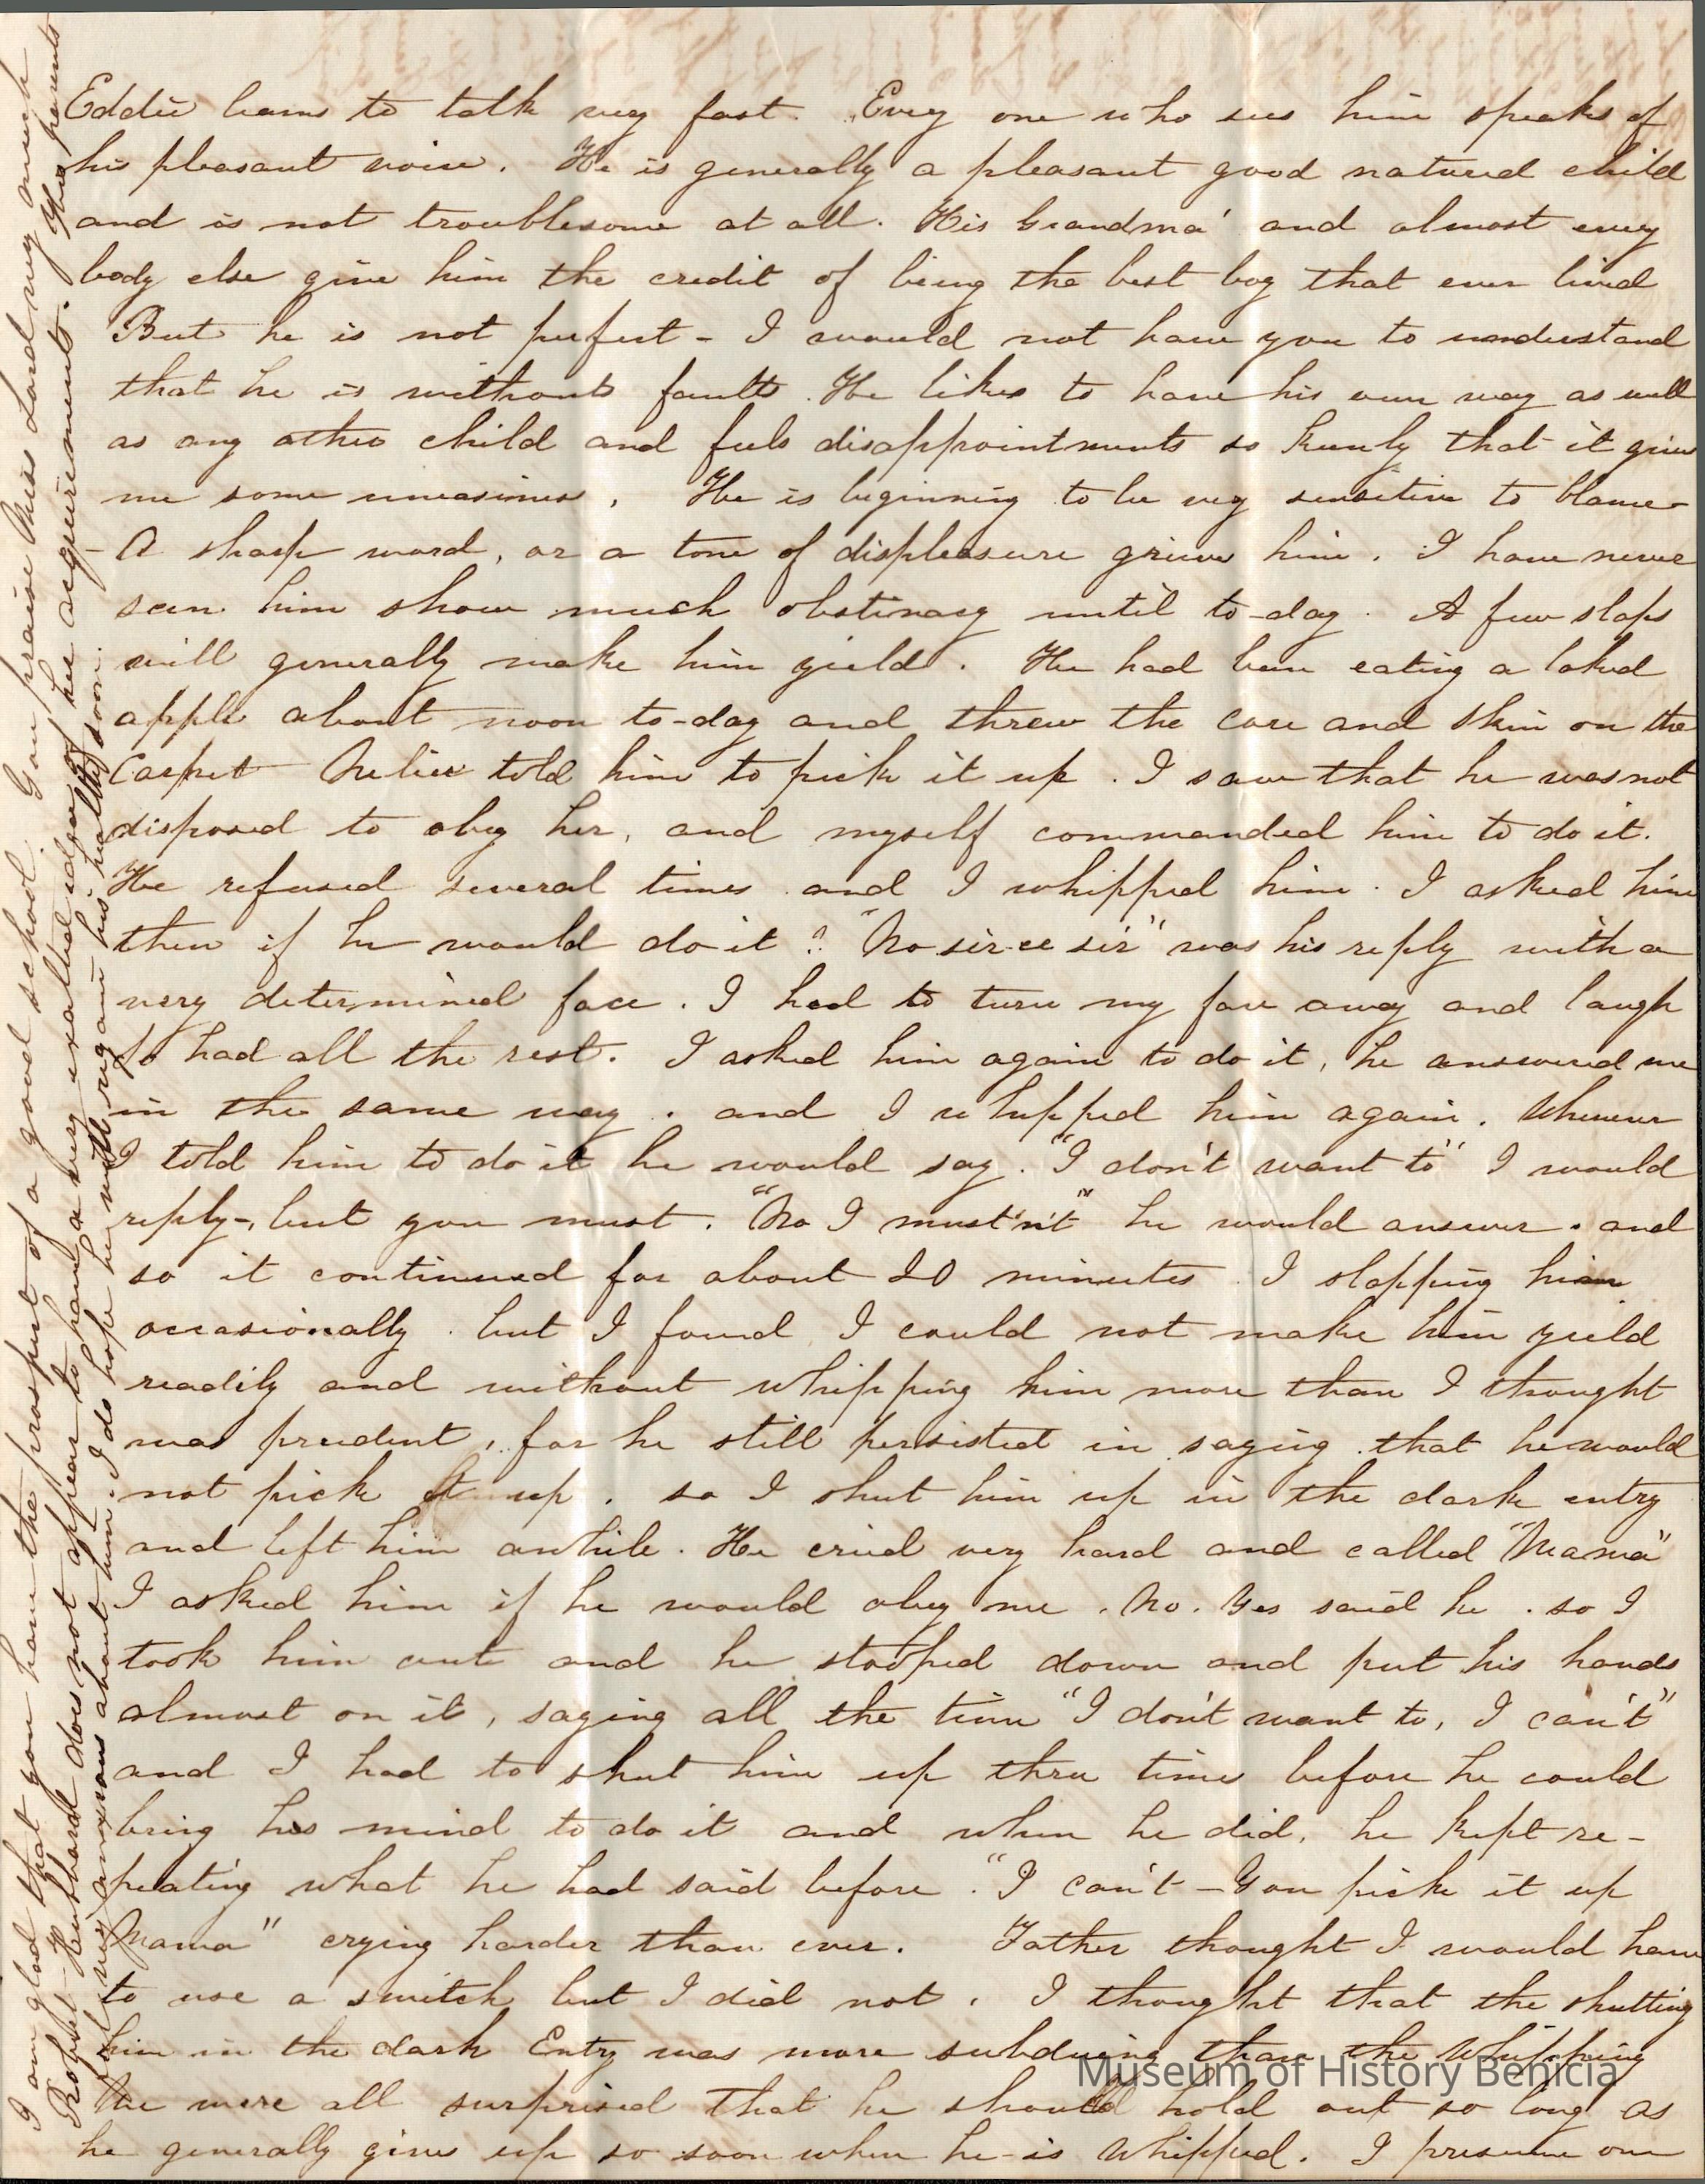 Eddie learns to talk very fast. Every one who sees him speaks of
his pleasant voice. He is generally a pleasant good natured child
and is not troublesome at all. His Grandma' and almost every
body else give him the credit of being the best boy that ever lived
But he is not perfect - I would not have you to understand
that he is without faults. He likes to have his own way as well
as any other child and feels disappointments so keenly that it gives
me some uneasiness, He is beginning to be very sensitive to blame -
- A sharp word, or a tone of displeasure grieves him. I have never
seen him show much obstinacy until to-day. A few slaps
will generally make him yield. He had been eating a baked
apple about noon to-day and threw the core and skin on the
Carpet told him to pick it up. I saw that he was not
disposed to obey her, and myself commanded him to do it.
He refused several times and I whipped him. I asked him
then if he would do it? "No sir-ee sir" was his reply with a
very determined face. I had to turn my face away and laugh
So had all the rest. I asked him again to do it, he answered me
in the same way. and I whipped him again. Whenever
I told him to do it he would say. "I don't want to" I would
reply -, but you must. "No I must'n't" he would answer. and
so it continued for about 20 minutes. I slapping him
occasionally. but I found I could not make him yield
readily and without whipping him more than I thought
was prudent, for he still persisted in saying that he would
not pick it up. so I shut him up in the dark entry
and left him awhile. He cried very hard and called "Mama"
I asked him if he would obey me. No. Yes said he. so I
took him out and he stooped down and put his hands
almost on it, saying all the time "I don't want to, I can't"
and I had to shut him up three times before he could
bring his mind to do it and when he did, he kept re-
peating what he had said before. "I can't - You pick it up
Mama" crying harder than ever. Father thought I would have
to use a switch but I did not. I thought that the shutting
him in the dark Entry was more subduing than the Whipping
We were all surprised that he should hold out so long as
he generally gives up so soon when he is Whipped. I presume our
I am glad that you have the prospect of a good school. You praise Miss Lord very much
Robert Hubbard does not appear to have a very exalted idea of her acquirements. His parents
feel very anxious about him. I do hope he will regain his health soon.
Museum of History Benicia